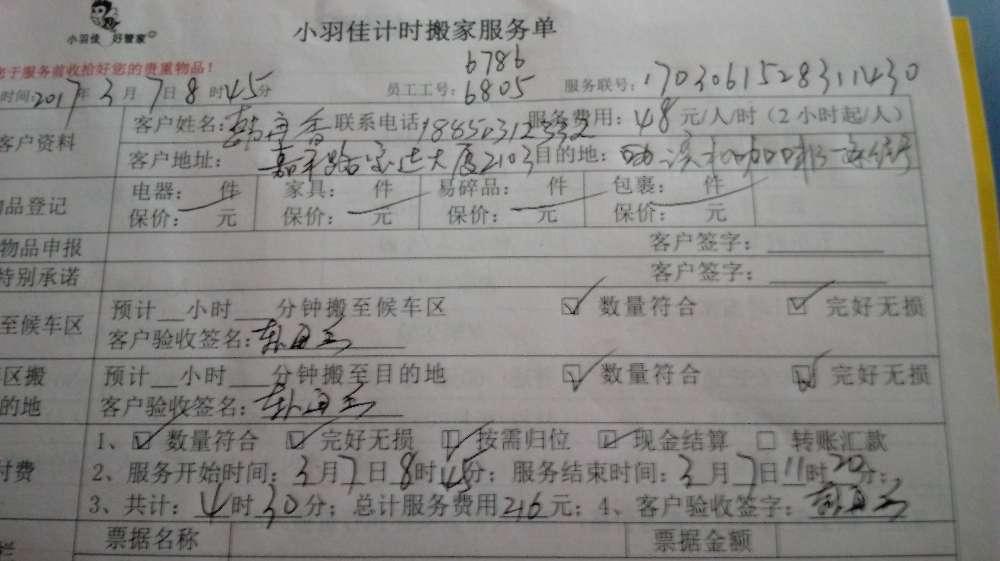 小羽佳 好管家
小羽佳计时搬家服务单
于服务前收拾好您的贵重物品！
6786
时间：2017年3月7日8时45分 员工工号：6805 服务联号：1703061528311430
客户资料 客户姓名： 联系电话 服务费用：48元/人/时（2小时起/人）
客户地址： 大厦2103 目的地：
品登记 电器： 件 家具： 件 易碎品： 件 包裹： 件
保价： 元 保价： 元 保价： 元 保价： 元
物品申报 客户签字：
特别承诺 客户签字：
至候车区 预计__小时___分钟搬至候车区 ☑ 数量符合 ☑ 完好无损
客户验收签名：
区搬 预计__小时___分钟搬至目的地 ☑ 数量符合 ☑ 完好无损
的地 客户验收签名：
1、☑ 数量符合 ☑ 完好无损 ☑ 按需归位 ☑ 现金结算 □ 转账汇款
付费 2、服务开始时间：3月7日8时45分；服务结束时间：3月7日11时20分；
3、共计：4时30分；总计服务费用216元；4、客户验收签字：
票据名称 票据金额